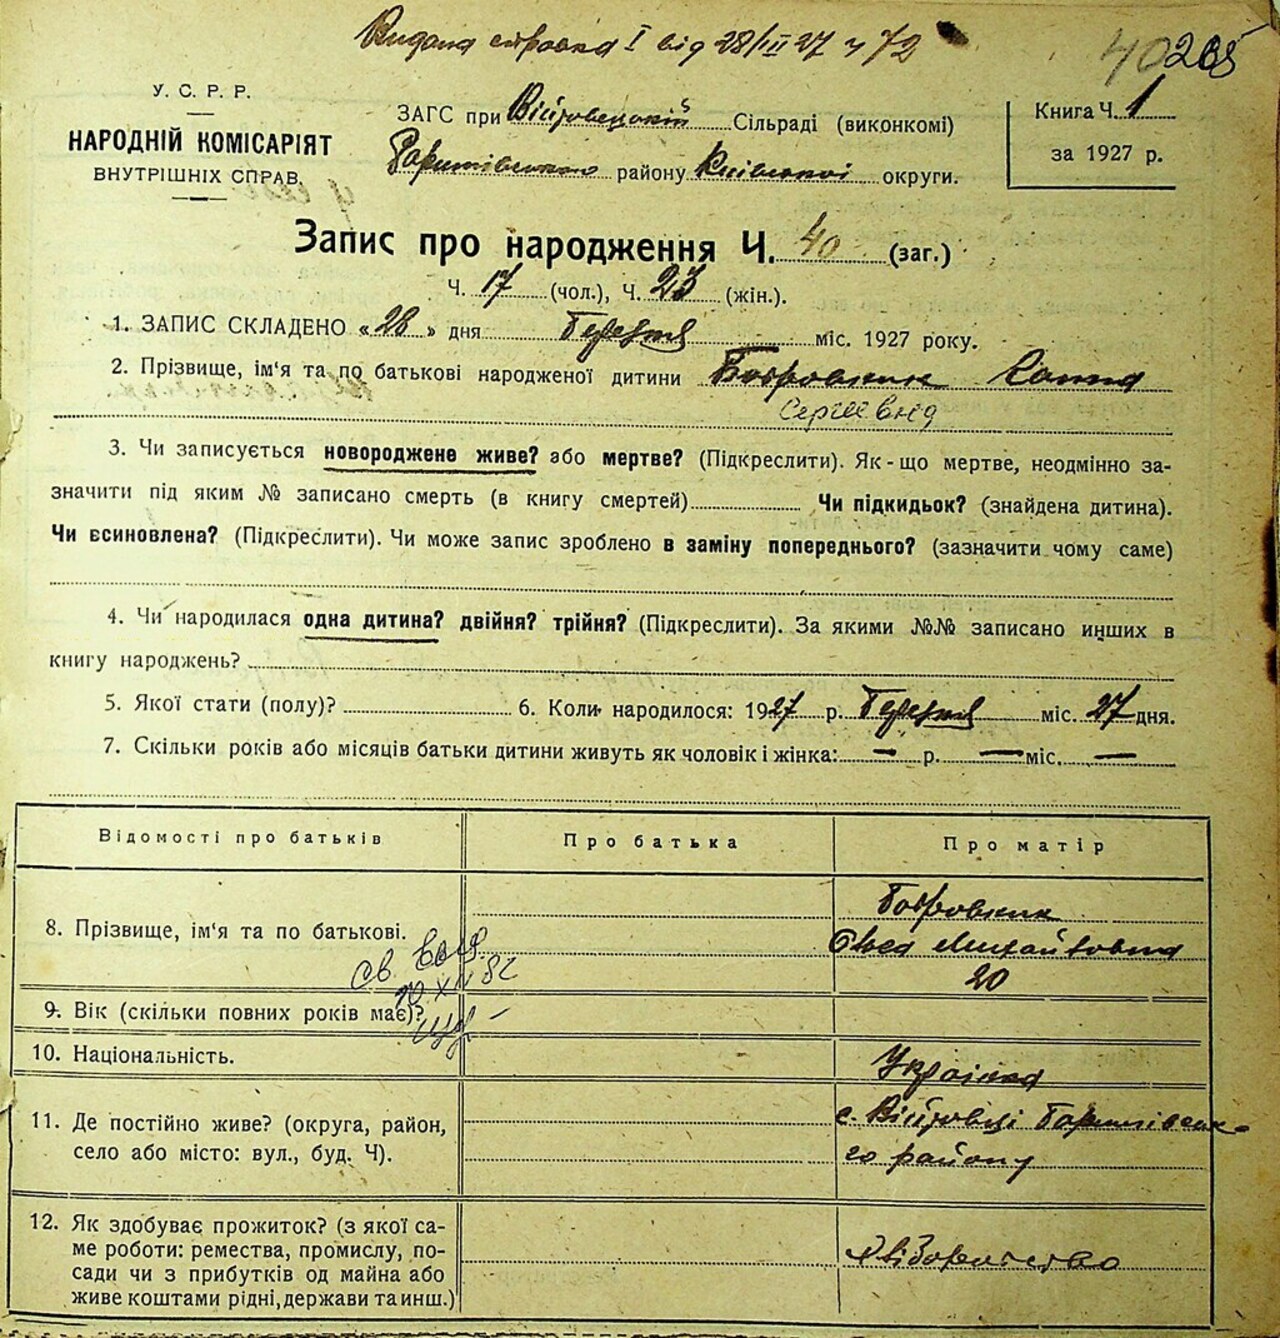 Видана справка І від 28/ІІІ 27 ч 72
40 265
У. С. Р. Р.
НАРОДНІЙ КОМІСАРІЯТ
ВНУТРІШНІХ СПРАВ.
ЗАГС при Війтовецькій Сільраді (виконкомі)
Баришівського району Київської округи.
Книга Ч. 1
за 1927 р.
Запис про народження Ч. 40 (заг.)
Ч. 17 (чол.), Ч. 23 (жін.).
1. ЗАПИС СКЛАДЕНО «28» дня Березня міс. 1927 року.
2. Прізвище, ім'я та по батькові народженої дитини Бобровник
Сергіївна
3. Чи записується новороджене живе? або мертве? (Підкреслити). Як-що мертве, неодмінно за-
значити під яким № записано смерть (в книгу смертей) Чи підкидьок? (знайдена дитина).
Чи єсиновлена? (Підкреслити). Чи може запис зроблено в заміну попереднього? (зазначити чому саме)
4. Чи народилася одна дитина? двійня? трійня? (Підкреслити). За якими №№ записано инших в
книгу народжень?
5. Якої стати (полу)? 6. Коли народилося: 1927 р. Березня міс. 27 дня.
7. Скільки років або місяців батьки дитини живуть як чоловік і жінка: — р. — міс. —
Відомості про батьків Про батька Про матір
8. Прізвище, ім'я та по батькові.
Бобровник
Михайловна
20
9. Вік (скільки повних років має)?
10. Національність.
Українка
11. Де постійно живе? (округа, район,
село або місто: вул., буд. Ч).
с. Війтовці Баришівсько-
го району
12. Як здобуває прожиток? (з якої са-
ме роботи: ремества, промислу, по-
сади чи з прибутків од майна або
живе коштами рідні, держави та инш.)
Хліборобство